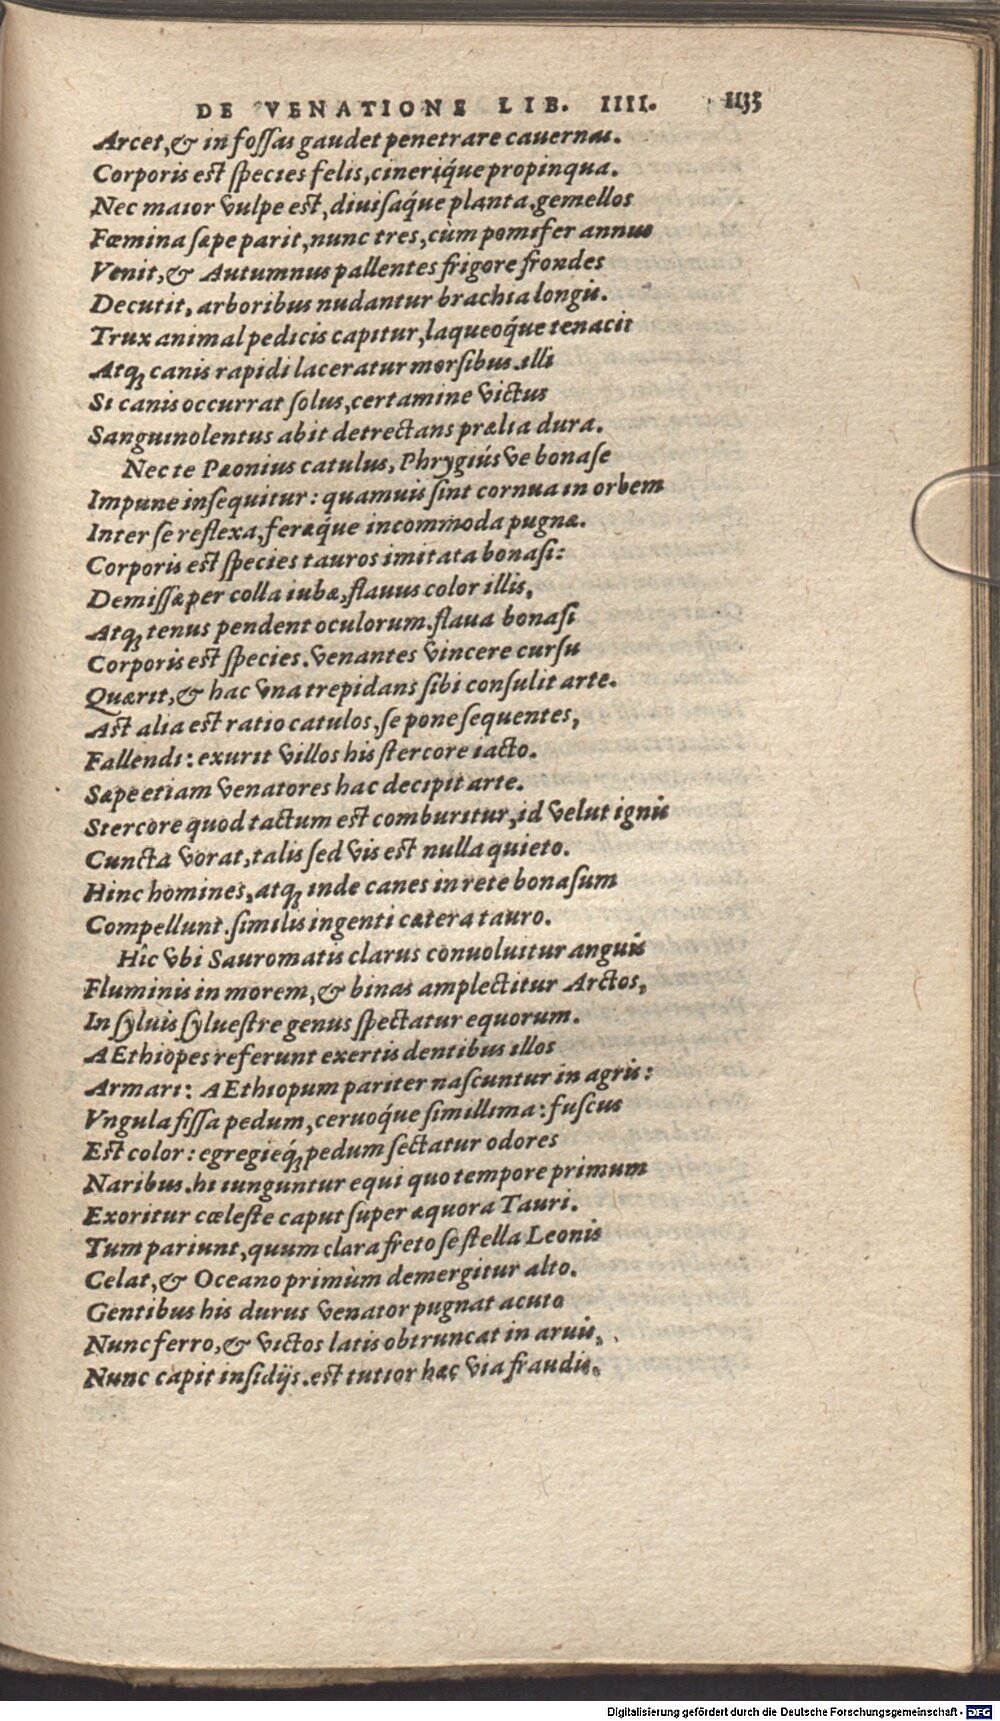 DE VENATIONE LIB. IIII. 1133
Arcet,& in foſſas gaudet penetrare cauernas.
Corporis eſt ſpecies felis,cineriq́;ue propinqua.
Nec maior vulpe eſt,diuiſaq́ue planta.gemellos
Fœmina ſæpe parit,nunc tres,cùm pomifer annus
Venit,& Autumnus pallentes frigore frondes
Decutit, arboribus nudantur brachia longis.
Trux animal pedicis capitur,laqueoq́ue tenacis
Atq; canis rapidi laceratur morſibus.illi
Si canis occurrat ſolus,certamine victus
Sanguinolentus abit detrectans prælia dura.
Nec te Pæonius catulus, Phrygiúsve bonaſe
Impune inſequitur: quamuis ſint cornua in orbem
Inter ſe reflexa,feræq́ue incommoda pugnæ.
Corporis eſt ſpecies tauros imitata bonaſi:
Demiſſæ per colla iubæ,flauus color illis,
Atq; tenus pendent oculorum.flaua bonaſi
Corporis eſt ſpecies.venantes vincere curſu
Quærit,& hac vna trepidans ſibi conſulit arte.
Aſt alia eſt ratio catulos,ſe pone ſequentes,
Fallendi: exurit villos his ſtercore iacto.
Sæpe etiam venatores hac decipit arte.
Stercore quod tactum eſt comburitur,id velut ignis
Cuncta vorat,talis ſed vis eſt nulla quieto.
Hinc homines,atq; inde canes in rete bonaſum
Compellunt.ſimilis ingenti cætera tauro.
Hîc vbi Sauromatis clarus conuoluitur anguis
Fluminis in morem,& binas amplectitur Arctos,
In ſyluis ſylueſtre genus ſpectatur equorum.
AEthiopes referunt exertis dentibus illos
Armari: AEthiopum pariter naſcuntur in agris:
Vngula fiſſa pedum,ceruoq́ue ſimillima: fuſcus
Eſt color: egregieq́; pedum ſectatur odores
Naribus.hi iunguntur equi quo tempore primum
Exoritur cœleſte caput ſuper æquora Tauri.
Tum pariunt,quum clara freto ſe ſtella Leonis
Celat,& Oceano primùm demergitur alto.
Gentibus his durus venator pugnat acuto
Nunc ferro,& victos latis obtruncat in aruis,
Nunc capit inſidijs.eſt tutior hæc via fraudis.
Digitalisierung gefördert durch die Deutsche Forschungsgemeinschaft - DFG